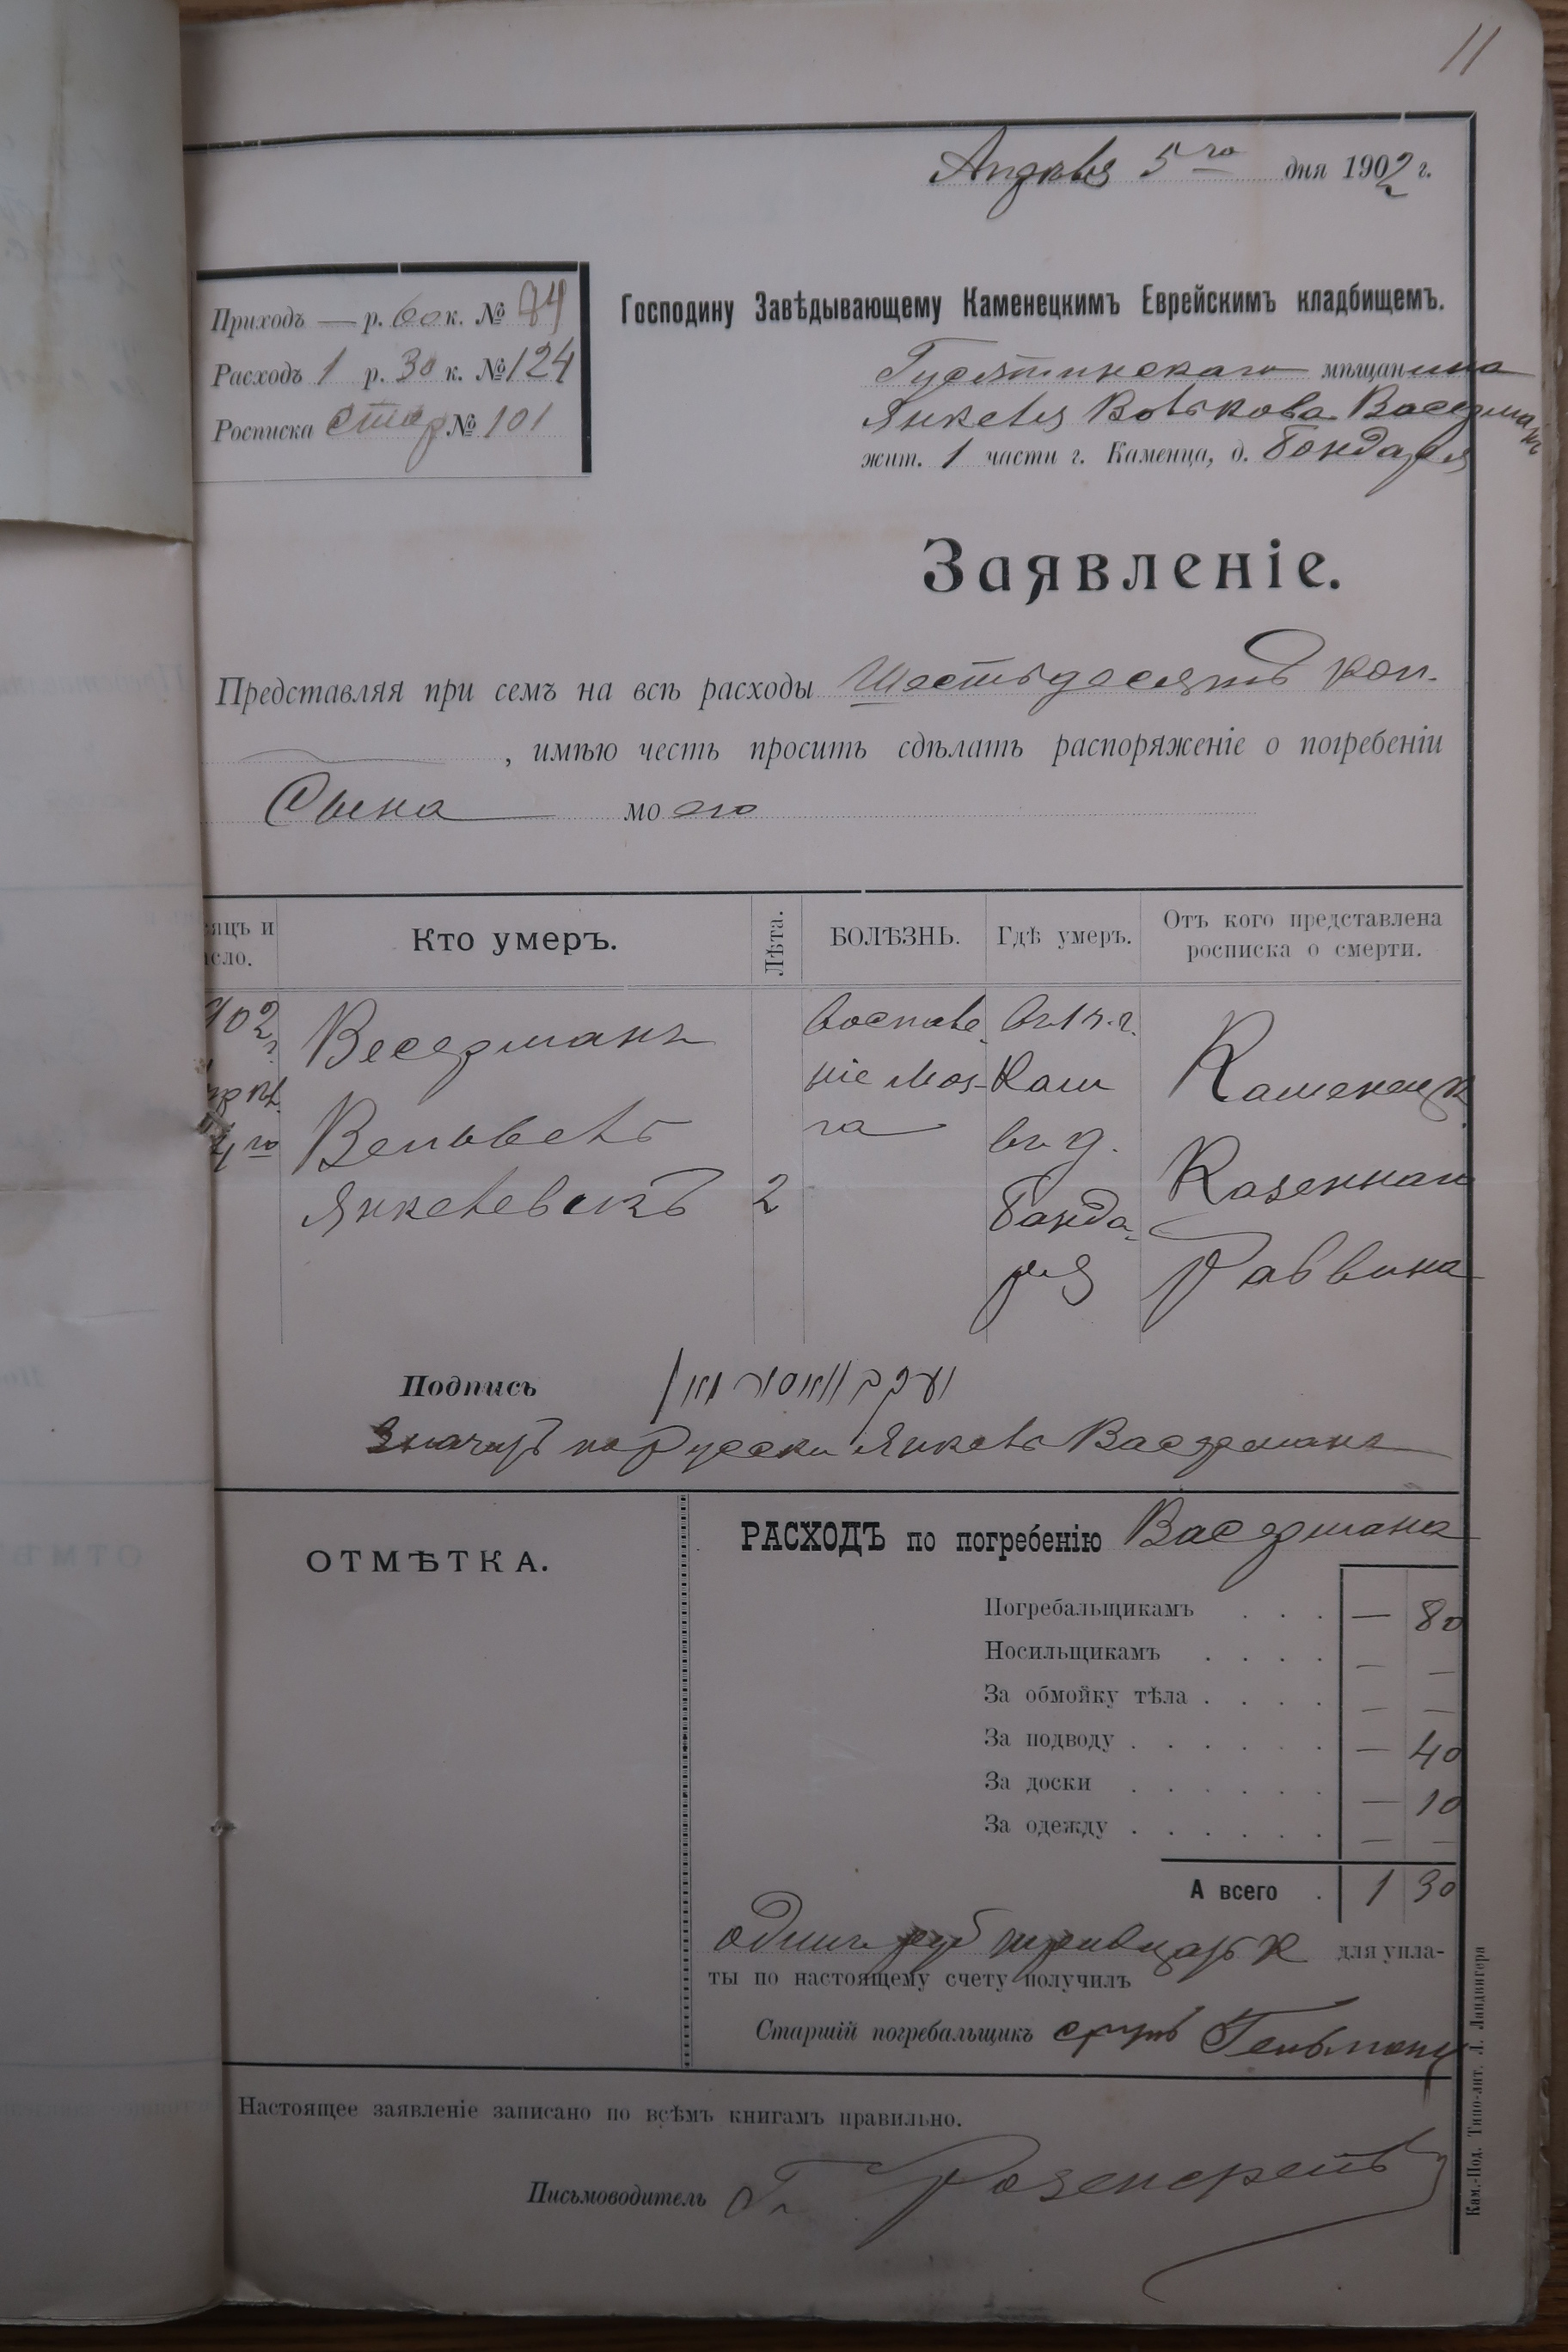 11
Апрѣля 5го дня 1902 г.
Приходъ — р. 60 к. № 84
Расходъ 1 р. 30 к. № 124
Росписка стар № 101
Господину Завѣдывающему Каменецкимъ Еврейскимъ кладбищемъ.
Гусятинскаго мѣщанина
Янкеля Волькова Васерманъ
жит. 1 части г. Каменца, д. Бондаря
Заявленіе.
Представляя при семъ на всѣ расходы Шестьдесятъ коп.
, имѣю честь просить сдѣлать распоряженіе о погребеніи
Сына моего
яцъ и
сло.
Кто умеръ.
Лѣта.
БОЛѢЗНЬ.
Гдѣ умеръ.
Отъ кого представлена
росписка о смерти.
902 г. Весерманъ воспале- въ 1 ч. г. Каменецк.
ніе моз- Кам
4го Вельвель га въ д. Казеннаго
Янкелевичъ 2 Банда-
ря Раввина
Подпись
Значитъ по Русски Янкель Васерманъ
ОТМѢТКА.
РАСХОДЪ по погребенію Васермана
Погребальщикамъ . . . — 80
Носильщикамъ . . . . — —
За обмойку тѣла . . . . — —
За подводу . . . . . . — 40
За доски . . . . . . — 10
За одежду . . . . . . — —
А всего . 1 30
одинъ руб тридцать к для упла-
ты по настоящему счету получилъ
Старшій погребальщикъ Гельманъ
Настоящее заявленіе записано по всѣмъ книгамъ правильно.
Письмоводитель
Кам.-Под. Типо-лит. Л. Ландвигера